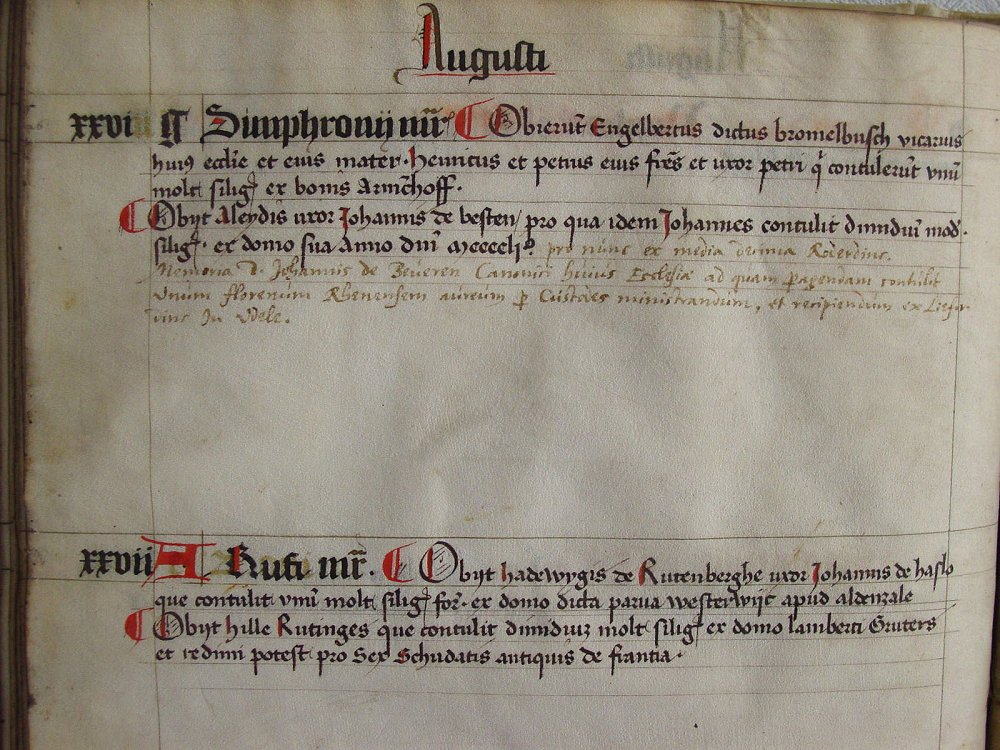 Augusti
xxvi g Simphronij mr̄ Obierūt Engelbertus dictus bromelbusch vicarius
huiꝯ eccl̄ie et eius mater · Henricus et petrus eius fr̄es et vxor petri q̄ contulerūt vnū
molt siligꝭ ex bonis Arnīchoff ·
Obijt Aleydis vxor Johannis de besten / pro qua idem Johannes contulit dimidiū mod̄ ·
siligꝭ · ex domo sua Anno dn̄i Mccccli° pro nunc ex media decima Roderdinc.
Memoria D. Johannis de Beueren Canonici huius Ecclesiæ ad quam peragendam contulit
vnum florenum Rhenensem aureum p̱ Custodes ministrandum, et recipiendum ex
In Vele.
xxvii A Rufi mr̄ . Obijt hadewygis de Rutenberghe vxor Johannis de haslo
que contulit vnū molt siligꝭ for̄ · ex domo dicta parua westerwijc apud aldenzale
Obijt hille Rutinges que contulit dimidiuz molt siligꝭ ex domo lamberti Gruters
et redimi potest pro Sex Schudatis antiquis de francia ·